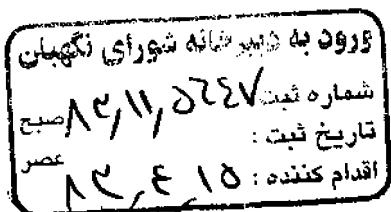 ورود به دبیرخانه شورای نگهبان
شماره ثبت ۸۳/۱۱/۵۶۴۷ صبح
تاریخ ثبت : عصر
اقدام کننده : ۸۳/۴/۱۵